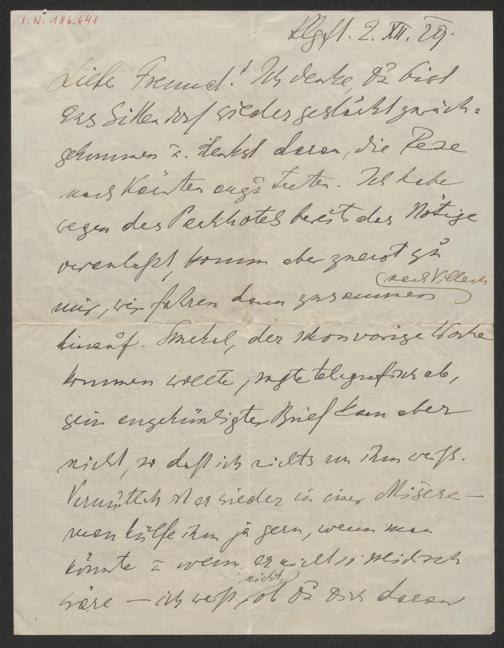 I.N. 186.641
Klgft. 2. XII. 29.
Lieber Freund! Ich denke, Du bist
aus Sittendorf wieder gestärkt zurück-
gekommen u. denkst daran, die Reise
nach Kärnten anzutreten. Ich habe
wegen des Parkhotels bereits das Nötige
veranlaßt, komm aber zuerst zu
mir, wir fahren dann zusammen (nach Villach)
hinauf. , der schon vorige Woche
kommen wollte, sagte telegrafisch ab,
sein angekündigter Brief kam aber
nicht, so daß ich nichts von ihm weiß.
Vermutlich ist er wieder in einer Misere –
man hülfe ihm ja gern, wenn man
könnte u. wenn er nicht so
wäre – ich weiß nicht, ob Du Dich daran